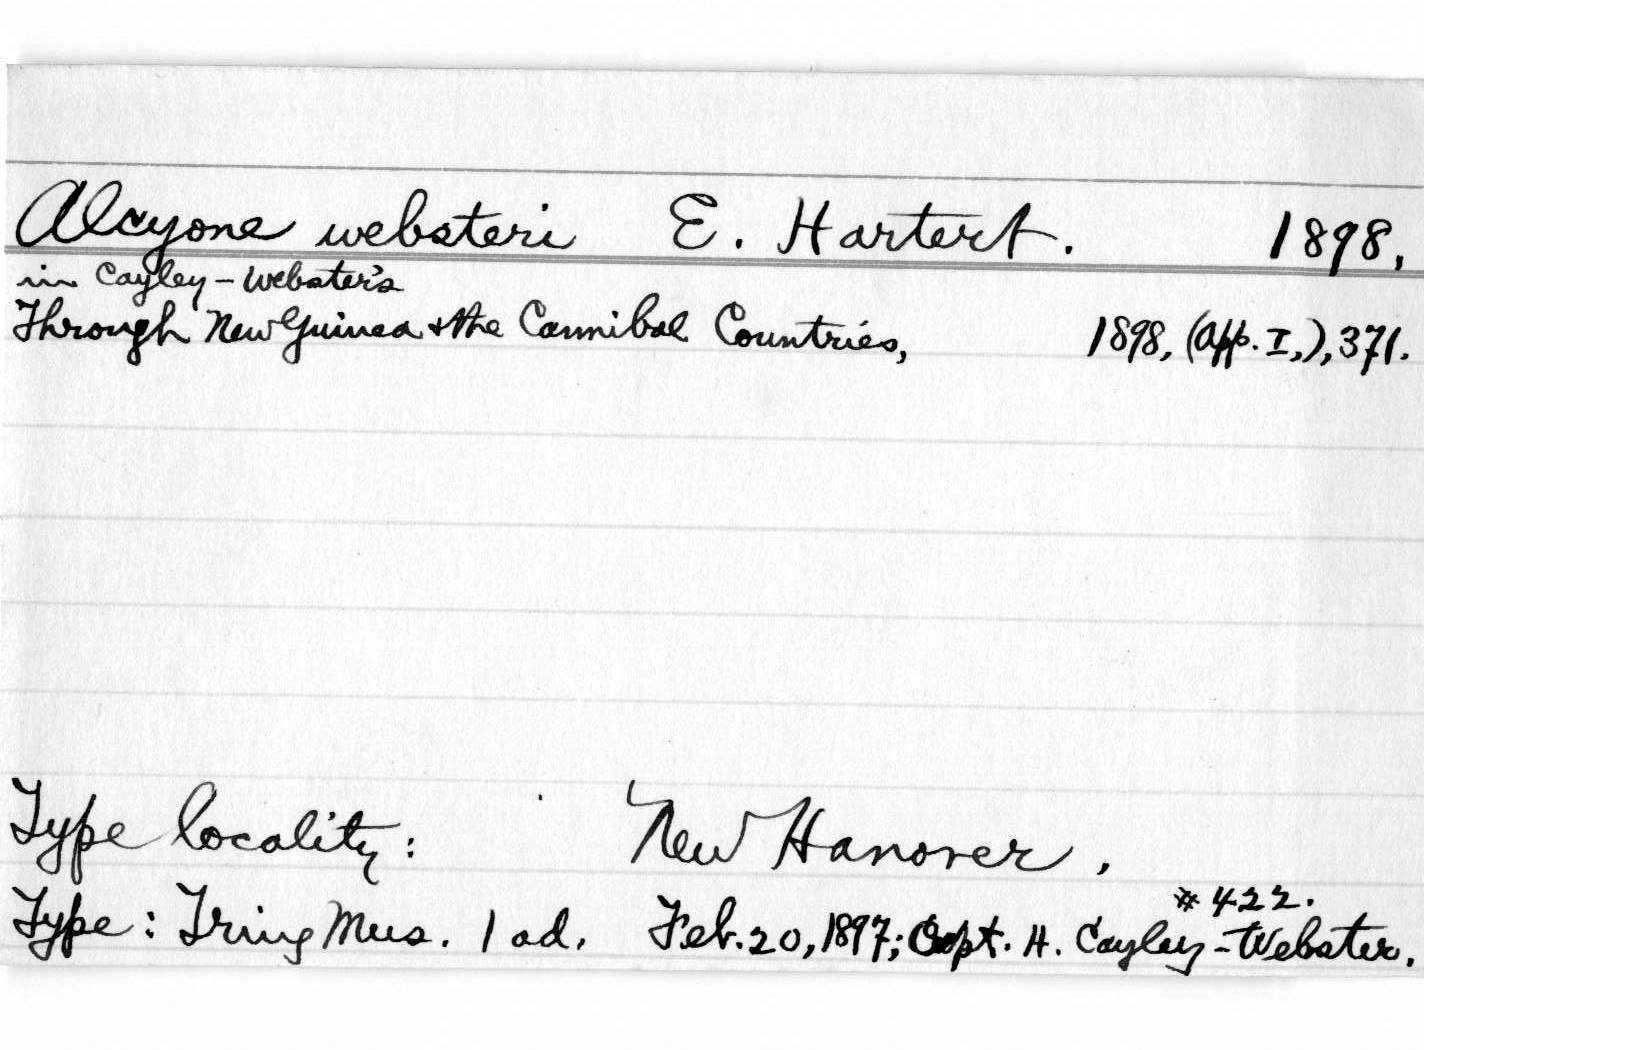 Alcyone websteri E. Hartert. 1898,
in Cayley-Webster's
Through New Guinea & the Cannibal Countries, 1898, (App. I,), 371.
Type locality: New Hanover,
#422.
Type: Tring Mus. 1 ad. Feb. 20, 1897; Capt. H. Cayley-Webster.